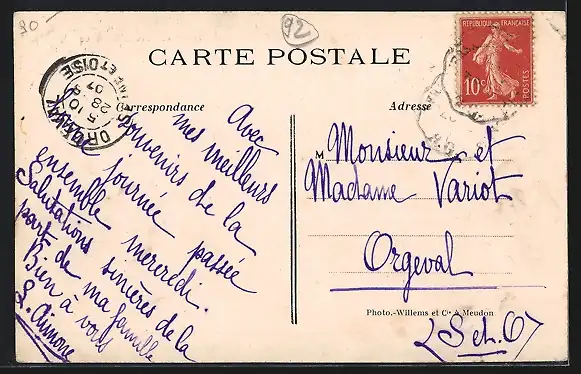 90
92
CARTE POSTALE
RÉPUBLIQUE FRANÇAISE
10c
POSTES
ORGEVAL
SEINE ET OISE
5 10
28 2
07
Correspondance
Adresse
Avec
mes meilleurs
souvenirs de la
journée passée
ensemble mercredi.
Salutations sincères de la
part de ma famille
Bien à vous
M Monsieur et
Madame Variot
Orgeval
(S et O)
Photo.-Willems et Cie à Meudon